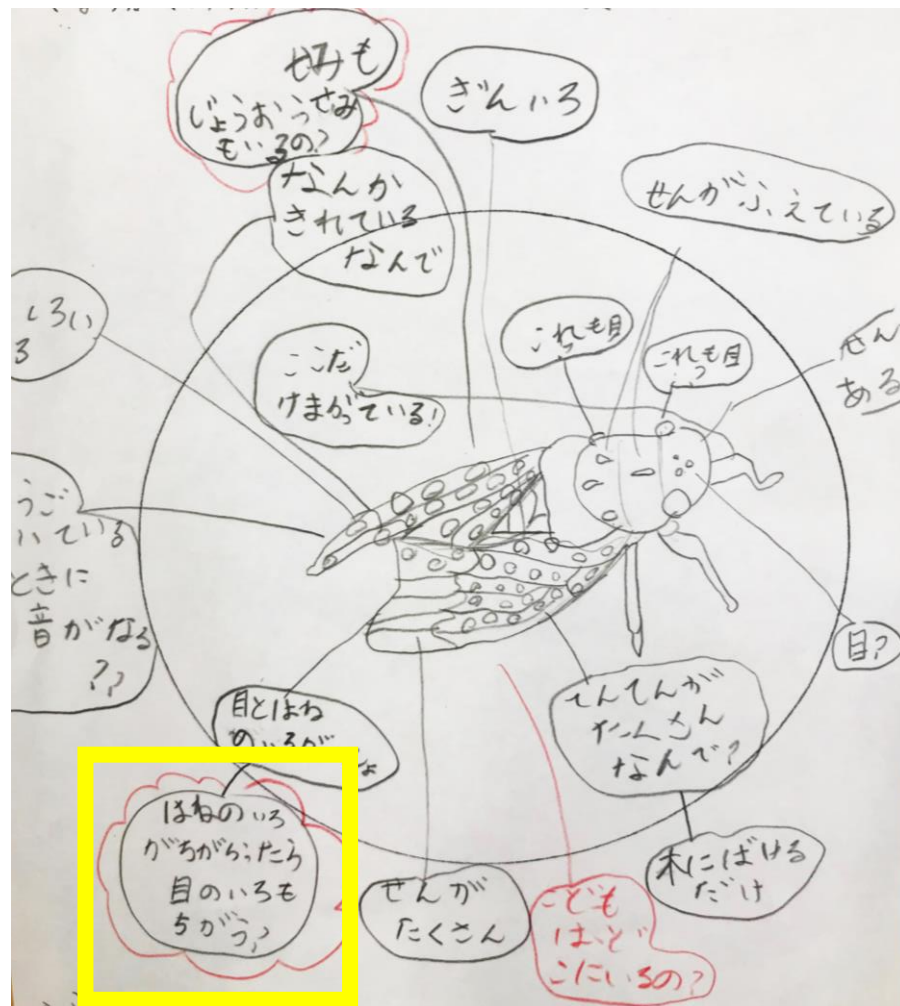 せみも
じょうおうせみ
もいるの?
ぎんいろ
なんか
きれている
なんで
せんがふえている
しろい
る
ここだ
けまがっている!
これも目
これも目
っ
せん
ある
うご
いている
ときに
音がなる
??
目?
目とはね
のいろが
てんてんが
たくさん
なんで?
はねのいろ
がちがらったら
目のいろも
ちがう?
せんが
たくさん
こども
は、ど
こにいるの?
木にばける
だけ